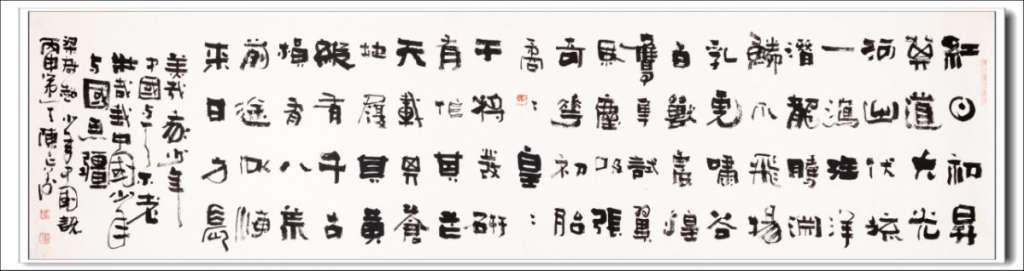 紅日初昇
其道大光
河出伏流
一瀉汪洋
潛龍騰淵
鱗爪飛揚
乳虎嘯谷
百獸震惶
鷹隼試翼
風塵吸張
奇花初胎
矞：皇：
干將發硎
有作其芒
天戴其蒼
地履其黃
縱有千古
橫有八荒
前途似海
來日方長
美哉我少年
中國与天不老
壯哉我中國少年
与國無疆
梁啟超少年中國說
丙申